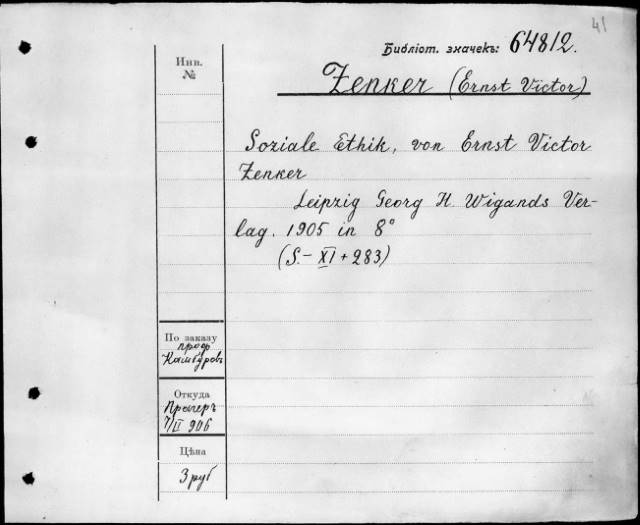 41
Библіот. значекъ: 64812.
Инв.
№
Zenker (Ernst Victor)
Soziale Ethik, von Ernst Victor
Zenker
Leipzig Georg H. Wigands Ver-
lag. 1905 in 8°
(S.- XI + 283)
По заказу
проф
Камбуровъ
Откуда
Прагеръ
7/II 906
Цѣна
3 руб